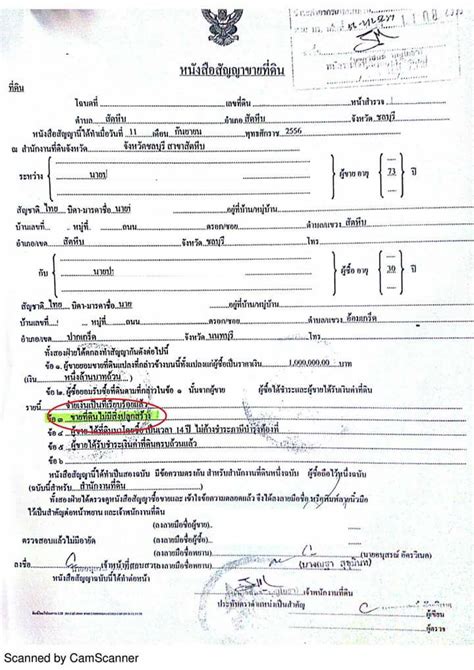 หนังสือสัญญาขายที่ดิน
ที่ดิน
โฉนดที่ เลขที่ดิน หน้าสำรวจ
ตำบล สัตหีบ อำเภอ สัตหีบ จังหวัด ชลบุรี
หนังสือสัญญานี้ได้ทำเมื่อวันที่ 11 เดือน กันยายน พุทธศักราช 2556
ณ สำนักงานที่ดินจังหวัด จังหวัดชลบุรี สาขาสัตหีบ
ระหว่าง ผู้ขาย อายุ 73 ปี
นาย
สัญชาติ ไทย บิดา-มารดาชื่อ นาย อยู่ที่บ้าน/หมู่บ้าน
บ้านเลขที่ หมู่ที่ ถนน ตรอก/ซอย ตำบล/แขวง สัตหีบ
อำเภอ/เขต สัตหีบ จังหวัด ชลบุรี โทร
กับ นาย ผู้ซื้อ อายุ 30 ปี
สัญชาติ ไทย บิดา-มารดาชื่อ นาย อยู่ที่บ้าน/หมู่บ้าน
บ้านเลขที่ หมู่ที่ ถนน ตรอก/ซอย ตำบล/แขวง อ้อมเกร็ด
อำเภอ/เขต ปากเกร็ด จังหวัด นนทบุรี โทร
ทั้งสองฝ่ายได้ตกลงทำสัญญากันดังต่อไปนี้
ข้อ ๑. ผู้ขายยอมขายที่ดินแปลงที่กล่าวข้างบนนี้ทั้งแปลงแก่ผู้ซื้อเป็นราคาเงิน 1,000,000.00 บาท
(เงิน หนึ่งล้านบาทถ้วน)
ข้อ ๒. ผู้ซื้อยอมรับซื้อที่ดินตามที่กล่าวในข้อ ๑ นั้นจากผู้ขาย ผู้ซื้อได้ชำระและผู้ขายได้รับเงินค่าที่ดิน
รายนี้ ขายเงินเป็นที่เรียบร้อยแล้ว
ข้อ ๓ ขายที่ดินไม่มีสิ่งปลูกสร้าง
ข้อ ๔ ผู้ขายได้ที่ดินมาโดยซื้อ เป็นเวลา 14 ปี ไม่ค้างชำระภาษีบำรุงท้องที่
ข้อ ๕ ผู้ขายได้รับชำระเงินค่าที่ดินครบถ้วนแล้ว
ข้อ ๖
หนังสือสัญญานี้ได้ทำเป็นสองฉบับ มีข้อความตรงกัน สำหรับสำนักงานที่ดินหนึ่งฉบับ ผู้ซื้อถือไว้หนึ่งฉบับ
(ฉบับนี้สำหรับ สำนักงานที่ดิน)
ทั้งสองฝ่ายได้ตรวจดูหนังสือสัญญาซื้อขายและ เข้าใจข้อความตลอดแล้ว จึงได้ลงลายมือชื่อ หรือพิมพ์ลายนิ้วมือ
ไว้เป็นสำคัญต่อหน้าพยาน และเจ้าพนักงานที่ดิน
(ลงลายมือชื่อผู้ขาย)
(ลงลายมือชื่อผู้ซื้อ)
ตรวจสอบแล้วไม่มีอายัด (ลงลายมือชื่อพยาน)
ลงชื่อ เจ้าหน้าที่สอบสวน (ลงลายมือชื่อพยาน)
หนังสือสัญญาฉบับนี้ได้ทำต่อหน้า
เจ้าพนักงานที่ดิน
ประทับตราตำแหน่งเป็นสำคัญ
ผู้เขียน
ผู้ตรวจ
Scanned by CamScanner